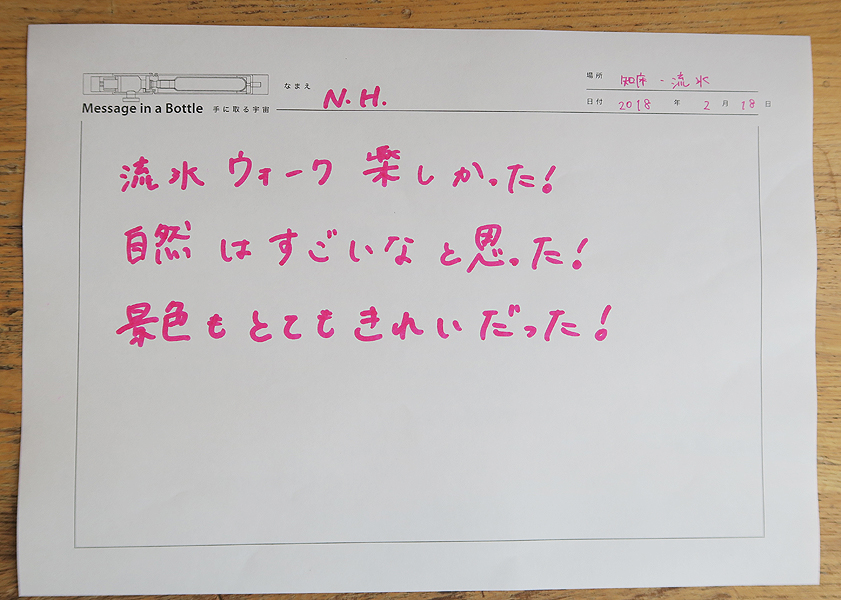 なまえ N.H.
場所 知床・流氷
Message in a Bottle 手に取る宇宙
日付 2018 年 2 月 18 日
流氷 ウォーク 楽しかった!
自然 は すごいな と思った!
景色も とても きれい だった!